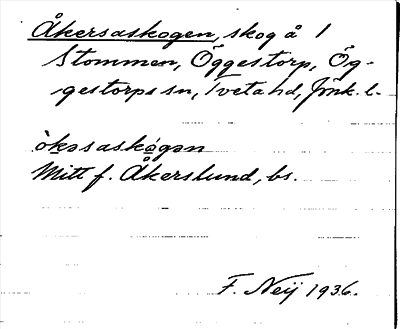 Åkersaskogen, skog å 1
Stommen, Öggestorp, Ög-
gestorps sn, Tveta hd, Jönk. l.
òkəsaskògən
Mitt f. Åkerslund, bs.
F. Neij 1936.